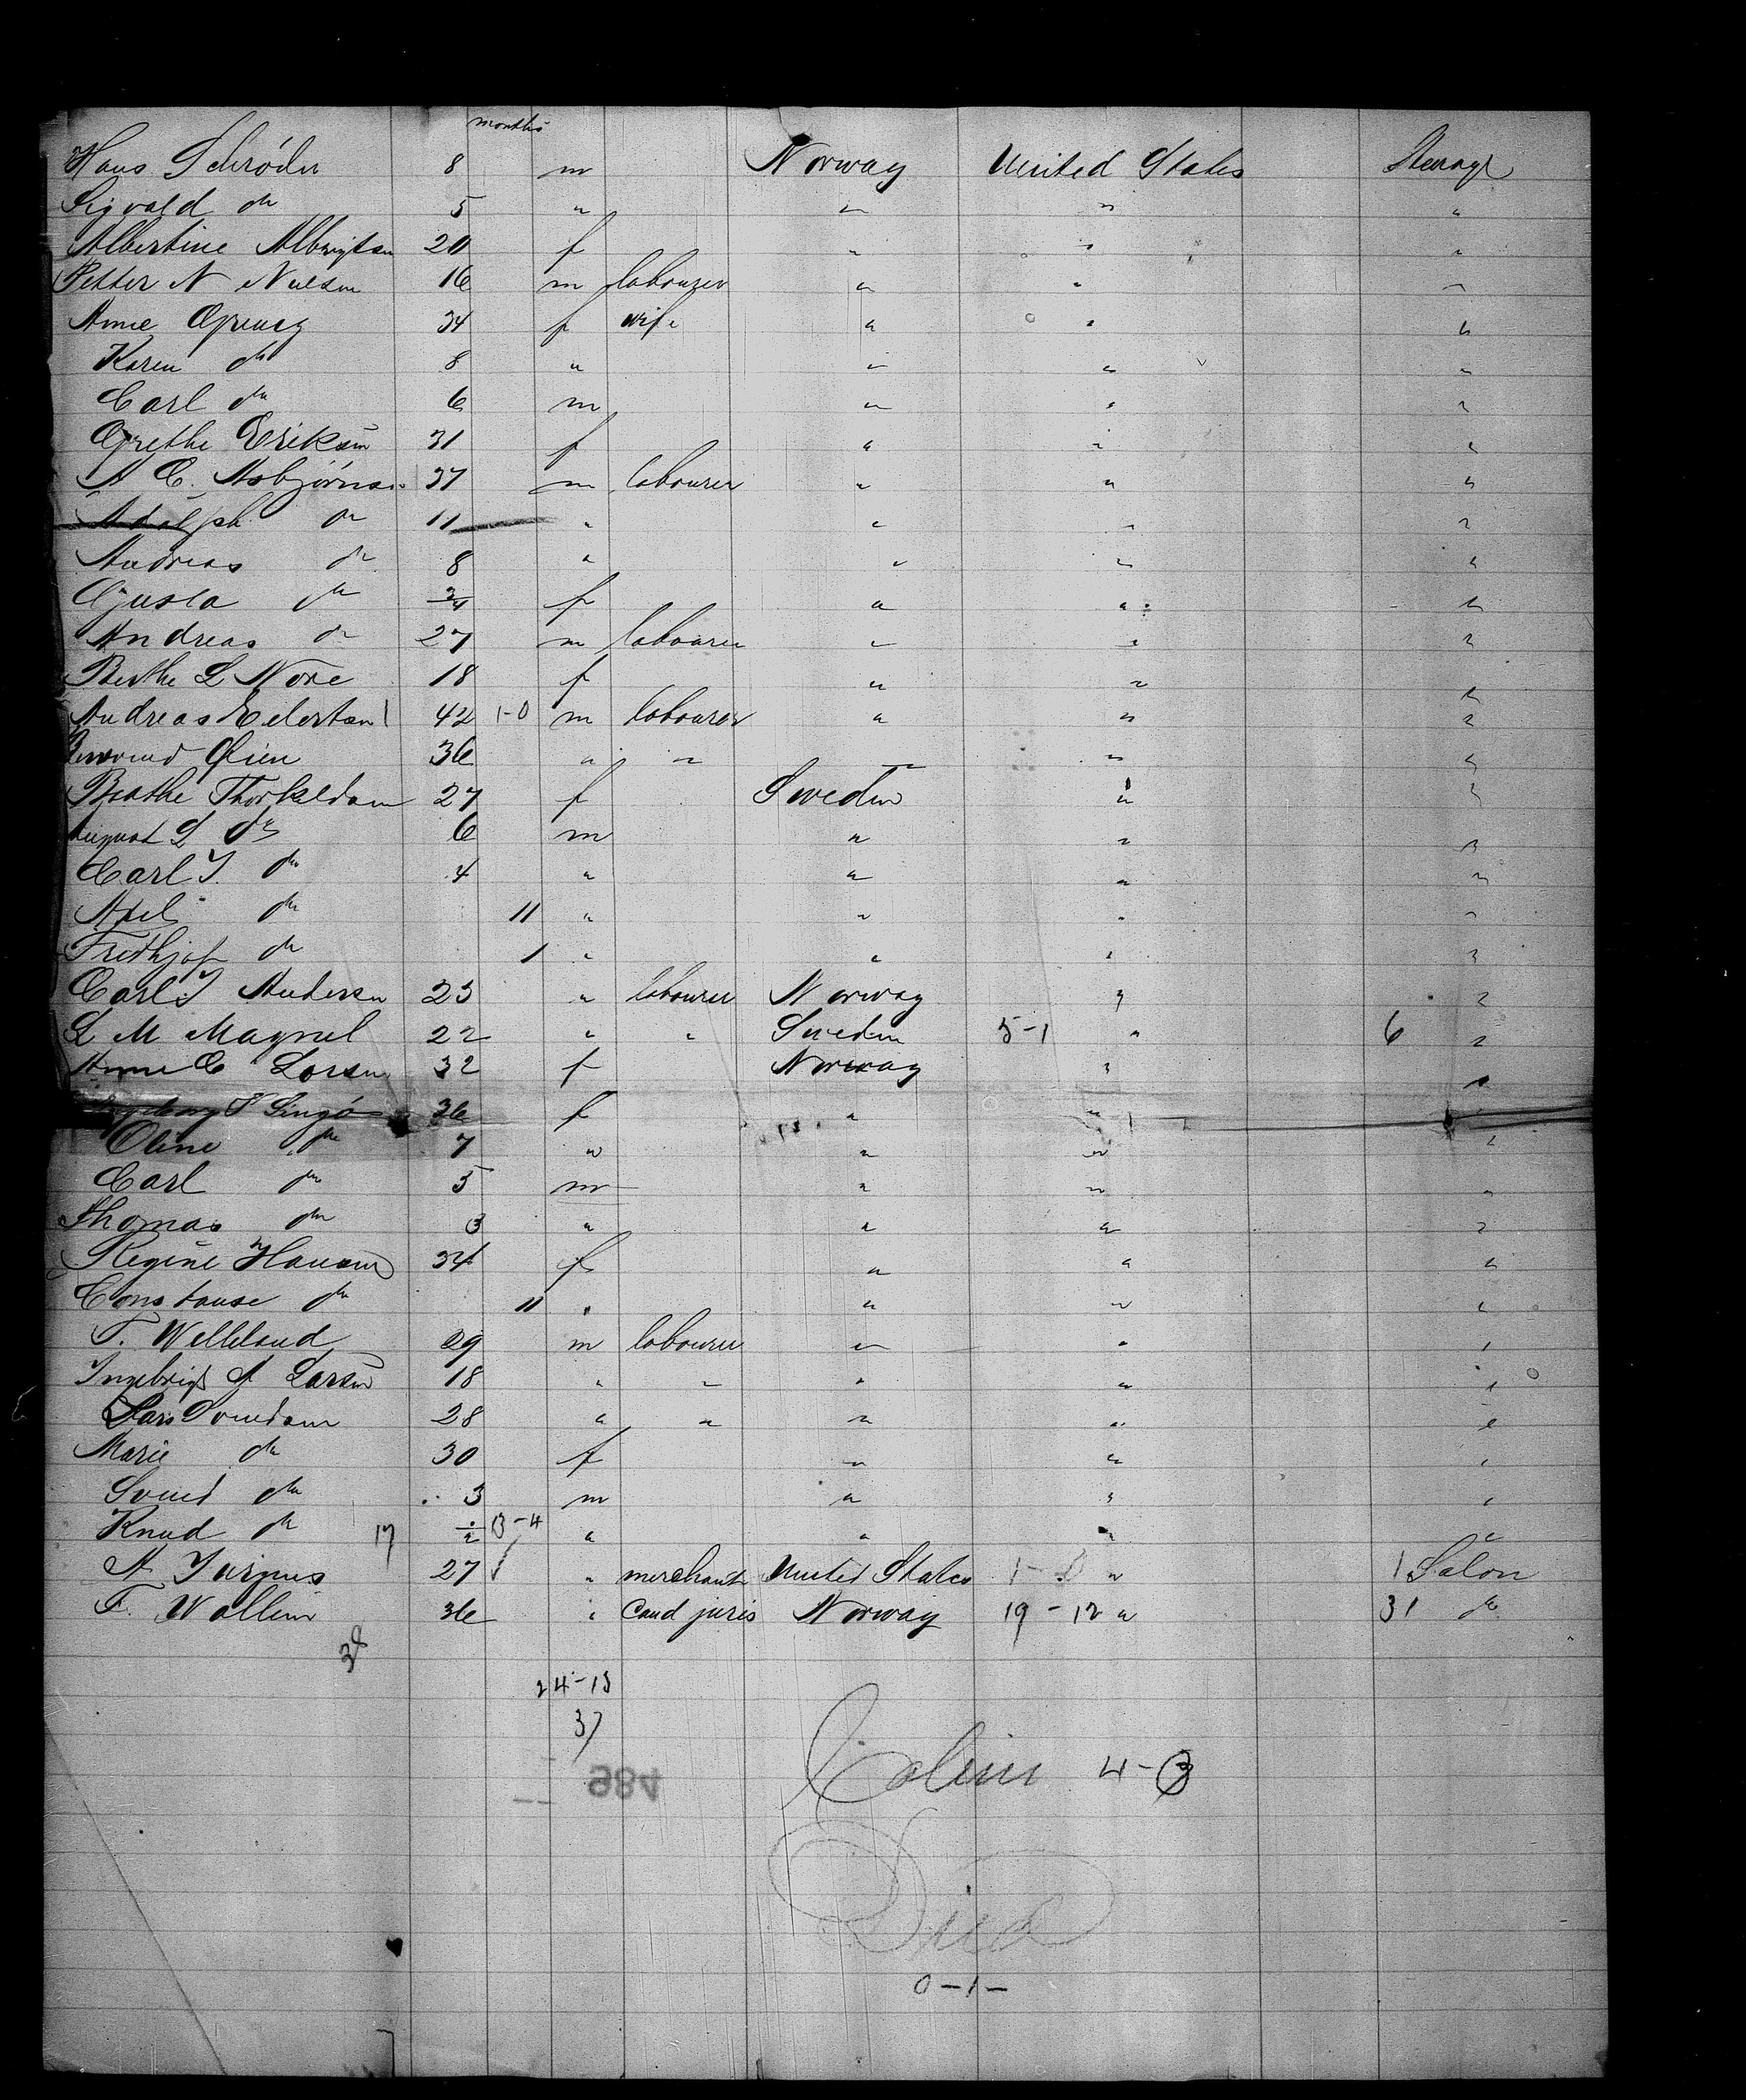 months
Hans Schröder 8 m Norway United States Steerage
Sigvald do 5 " " " "
Albertine 20 f " " "
Petter N 16 m labourer " " "
Anne 34 f wife " " "
Karen do 8 " " " "
Carl do 6 m " " "
Grethe Eriksen 31 f " " "
A C. Asbjörnsen 37 m labourer " " "
Adolph do 11 " " " "
Andreas do 8 " " " "
do 3/4 f " " "
Andreas do 27 m labourer " " "
Berthe L 18 f " " "
Andreas 42 1-0 m labourer " " "
36 " " " " "
Beathe Thorkeldsen 27 f Sweden " "
August L do 6 m " " "
Carl J. do 4 " " " "
Axel do 11 " " " "
Fridthjof do 1 " " " "
Carl J Andersen 23 " labourer Norway " "
L M Magnel 22 " " Sweden 5-1 " 6 "
Anne C Larsen 32 f Norway " "
36 f " "
Oline do 7 " " " "
Carl do 5 m " " "
Thomas do 3 " " " "
Regine Hansen 34 f " " "
Constanse do 11 " " " "
T. Welleland 29 m labourer " " "
Ingebrigt A Larsen 18 " " " " "
Lars Svendsen 28 " " " " "
Marie do 30 f " " "
Svend do 3 m " " "
Knud do 17 1/2 13-4 " " " "
A 27 " merchant United States 1-0 " 1 Salon
F. Wallem 36 " Cand juris Norway 19-12 " 31 do
38
24-13
37
984
Cabin 4-3
Died
0-1-